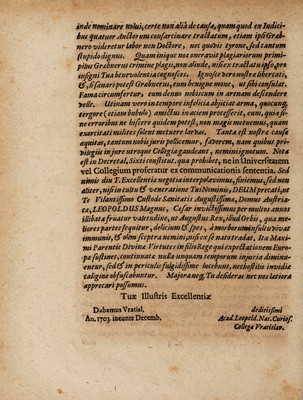 inde nominare nolui, certe non aliâ de causa, quam quod ex Indici-
bus quatuor Auctorum consarcinare tractatum, etiam ipsi Grab-
nero videretur labor non Doctore, nec quovis tyrone, sed tantum
stupido dignus. Quam inique nos encravit plagiariorum primi-
pilus Grabnerus crimine plagii, non aliunde, nisi ex tractatu ipso, pro
insigni Tua benevolentia cognosces. Ignosce vero nostra libertati,
& si sanari potest Grabnerus, eum benigne mone, ut sibi consulat.
Fama circumfertur, eum denuo nobiscum in arenam descendere
velle. Utinam vero in tempore infelicia abjiciat arma, quucunq;
tergore (etiam bubulo) amictus in aciem processerit, cum, quia si-
ne erroribus ne hiscere quidem potest, non magis metuemus, quam
exercitati milites solent metuere larvas. Tanta est nostræ causa
aquitas, tantum nobis juris pollicemur, favorem, nam quibus pri-
vilegiis in jure utroque Collegia gaudeant, nemini ignotum. Nota
est in Decretal, Sixti constitut. qua prohibet, ne in Universitatem
vel Collegium proferatur excommunicationis sententia. Sed ni-
mis diu T. Excellentia negotia interpolavimus, finimus, sed non
aliter, nisi in cultu & veneratione Tui Nominis, DEUM precati, ut
Te Vilantissimo Custode Sanitatis augustissima, Domus Austria-
ca, LEOPOLDUS Magnus, Cæsar invictissimus per multos annos
illibata fruatur vatitudine, ut Augustus Rex, illud Orbis, qua me-
liores partes sequitur, delicium & spes, à morborum insultu vivat
immunis, & olim sceptra nomini, nisi ex se nato tradat, Ita Maxi-
mi Parentis Divina Virtutes in filio Rege qui expectationem Euro-
pæ sustinet, continuata nulla unquam temporum injuria diminu-
entur, sed & in periculis fulgidissime lucebunt, nec hostilis invidia
caligine obfuscabuntur. Majora neq; Tu desideras nec nos latiora
apprecari possumus.
Tuæ Illustris Excellentiæ
Dabamus Vratisl.
An. 1703. ineunte Decemb.
dediti ssimi
Acad. Leopold. Nat. Curios.
Collega Vratislav.